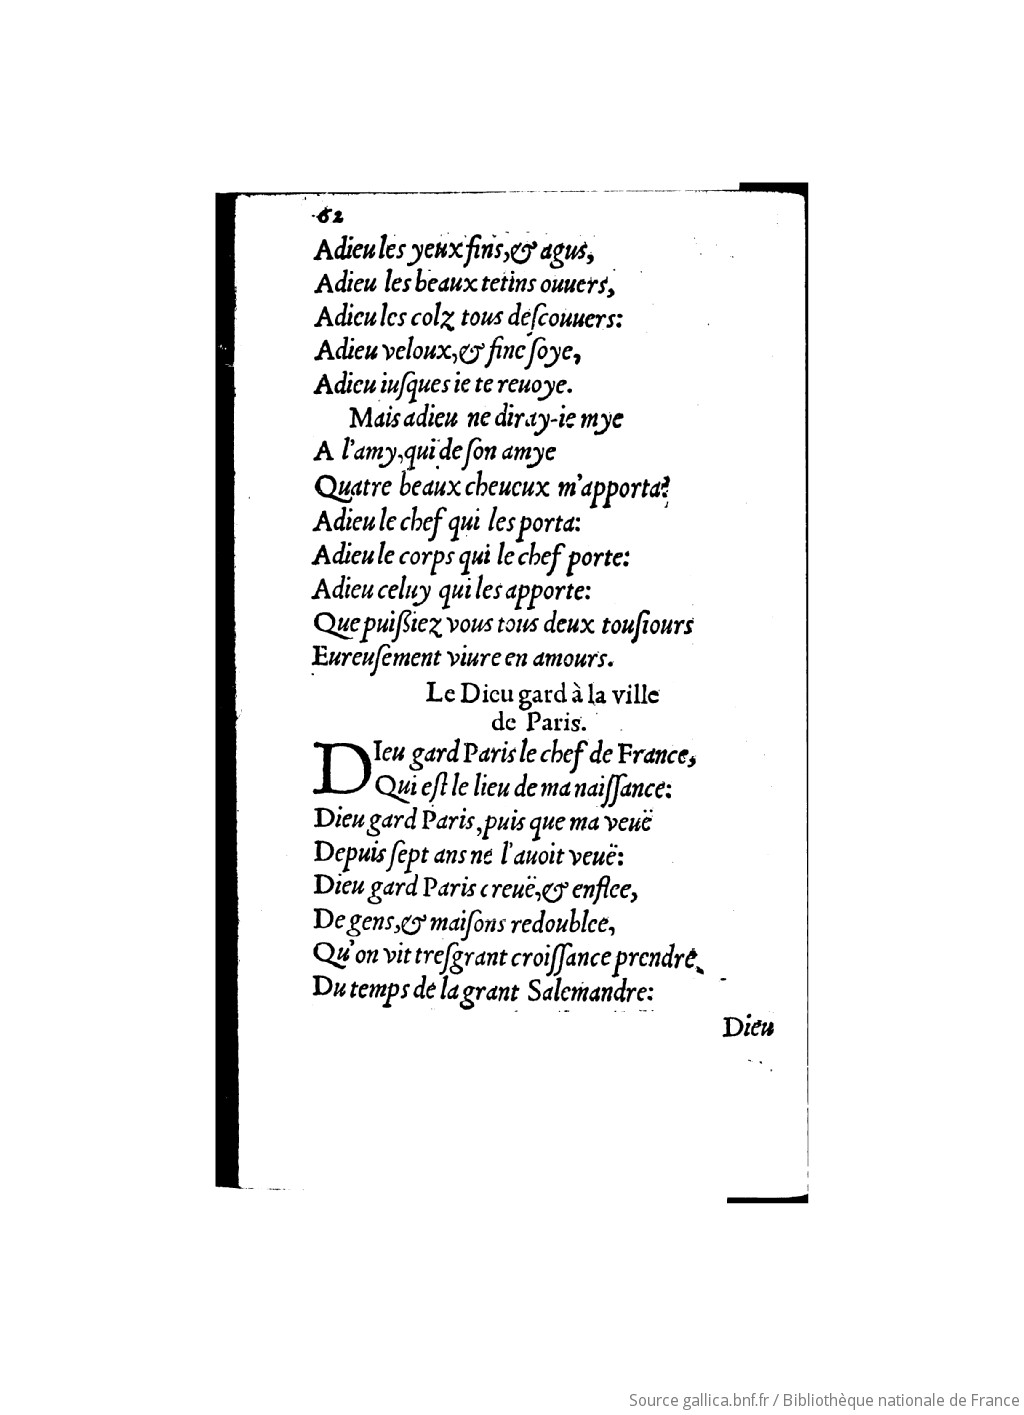 62
Adieu les yeux fins,& agus,
Adieu les beaux tetins ouuers,
Adieu les colz tous deſcouuers:
Adieu veloux,& fine ſoye,
Adieu iuſques ie te reuoye.
Mais adieu ne diray-ie mye
A l'amy,qui de ſon amye
Quatre beaux cheueux m'apporta?
Adieu le chef qui les porta:
Adieu le corps qui le chef porte:
Adieu celuy qui les apporte:
Que puiſsiez vous tous deux touſiours
Eureuſement viure en amours.
Le Dieu gard à la ville
de Paris.
DIeu gard Paris le chef de France,
Qui eſt le lieu de ma naiſſance:
Dieu gard Paris,puis que ma veuë
Depuis ſept ans ne l'auoit veuë:
Dieu gard Paris creuë,& enflee,
De gens,& maiſons redoublee,
Qu'on vit treſgrant croiſſance prendre,
Du temps de la grant Salemandre:
Dieu
Source gallica.bnf.fr / Bibliothèque nationale de France